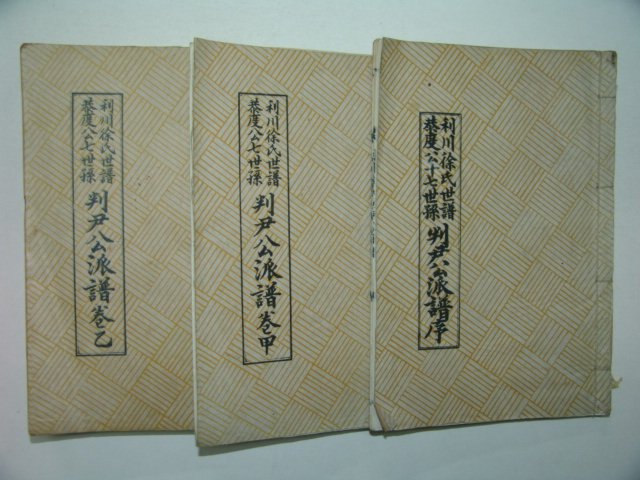 利川徐氏世譜
恭度公十七世孫
判尹公派譜序
利川徐氏世譜
恭度公七世孫
判尹公派譜卷甲
利川徐氏世譜
恭度公七世孫
判尹公派譜卷乙